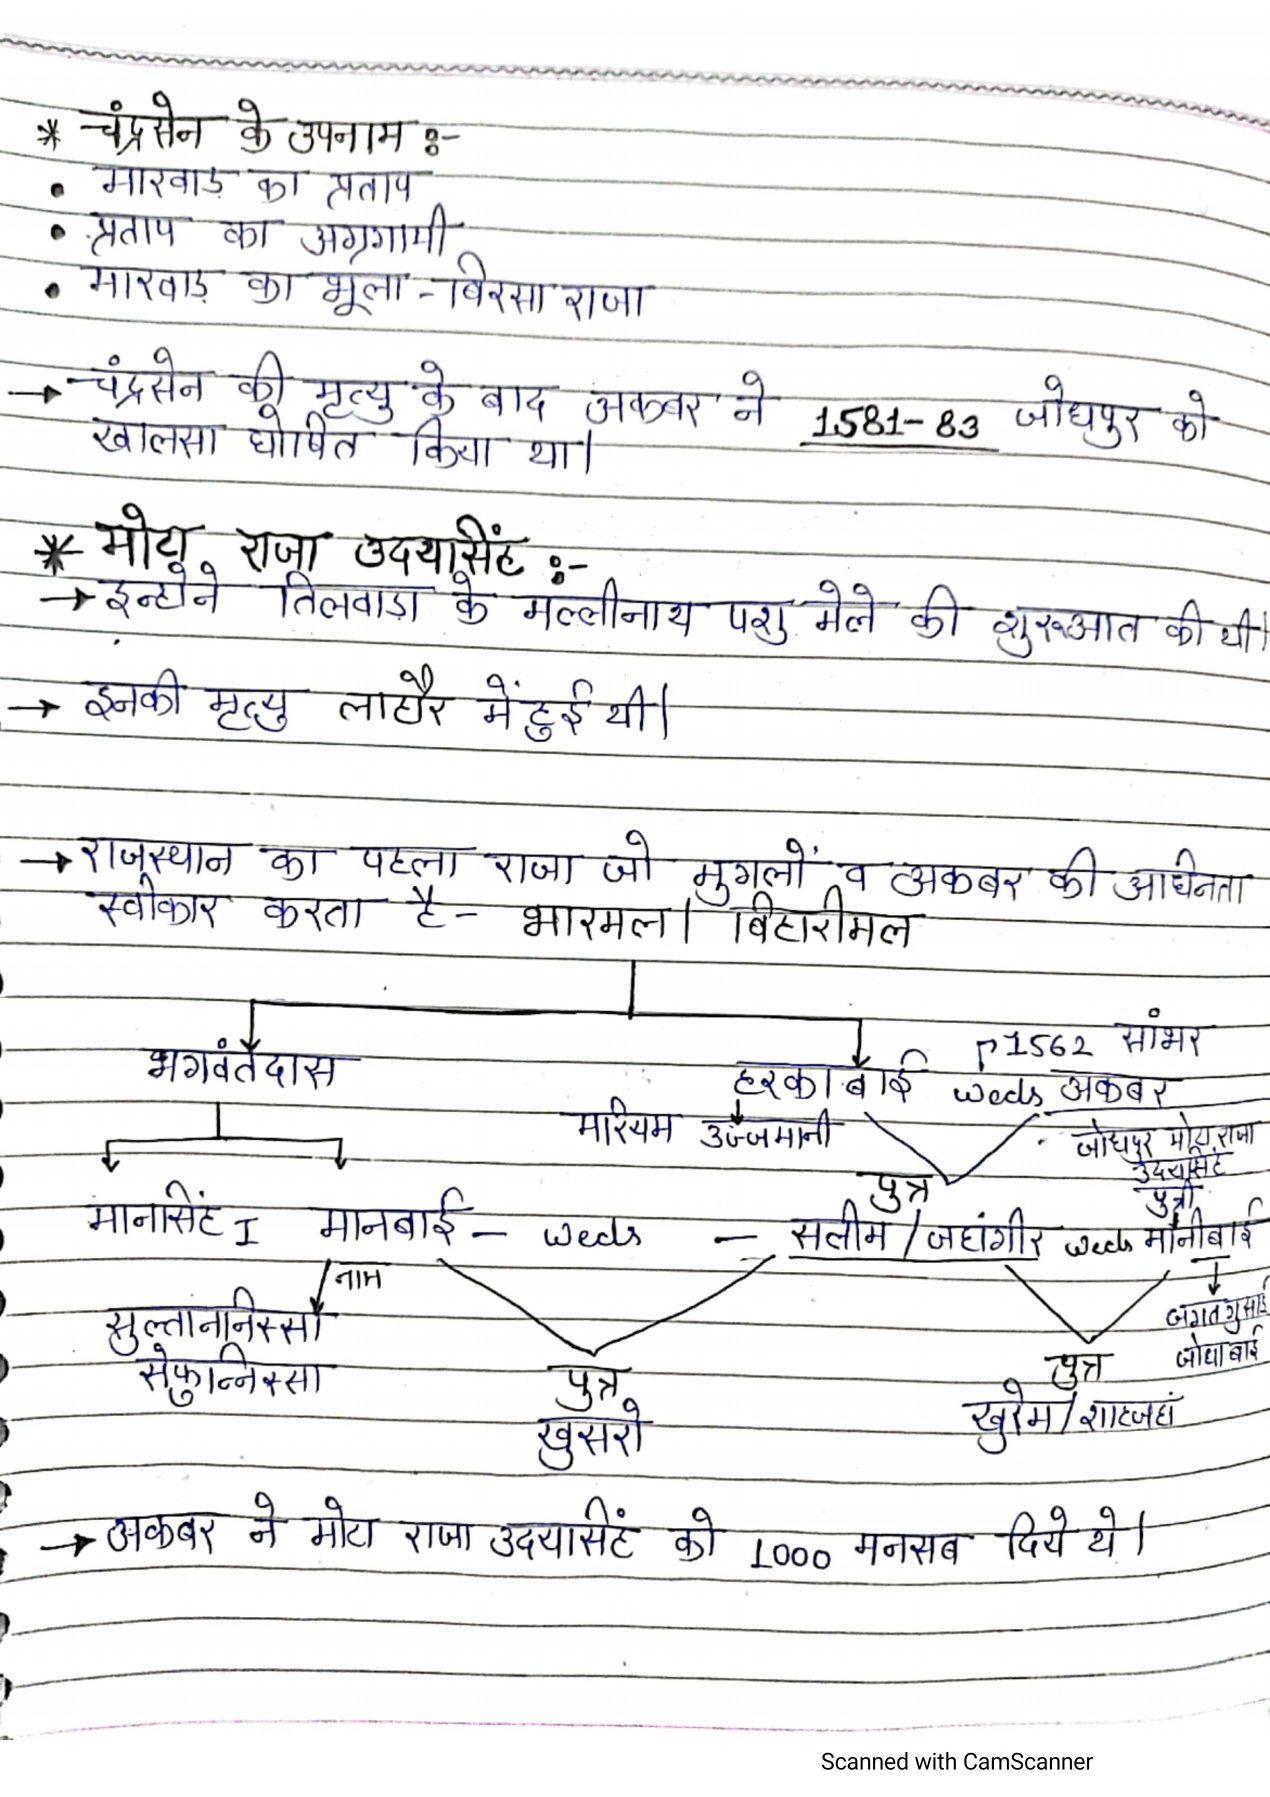 * चंद्रसेन के उपनाम :-
• मारवाड़ का प्रताप
• प्रताप का अग्रगामी
• मारवाड़ का भूला - विरसा राजा
→ चंद्रसेन की मृत्यु के बाद अकबर ने 1581-83 जोधपुर को
खालसा घोषित किया था।
* मोटा राजा उदयसिंह :-
→ इन्होने तिलवाड़ा के मल्लीनाथ पशु मेले की शुरुआत की थी।
→ इनकी मृत्यु लाहौर में हुई थी।
→ राजस्थान का पहला राजा जो मुगलों व अकबर की आधिनता
स्वीकार करता है - भारमल। बिहारीमल
1562 सांभर
भगवंतदास हरका बाई weds अकबर
मारियम उज्जमानी जोधपुर मोटा राजा
उदयसिंह
पुत्र पुत्री
मानसिंह I मानबाई - weds - सलीम / जहांगीर weds मानीबाई
नाम
सुल्ताननिस्सा जगतगुसाई
सेफुन्निस्सा पुत्र पुत्र जोधाबाई
खुसरो खुर्रम / शाहजहां
→ अकबर ने मोटा राजा उदयसिंह को 1000 मनसब दिये थे।
Scanned with CamScanner